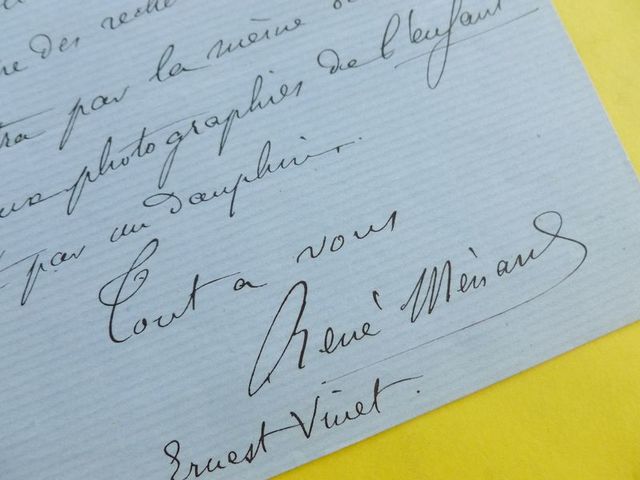 des
par la même
photographies de l'enfant
par un dauphin.
Tout a vous
René Ménard
Ernest Vinet.